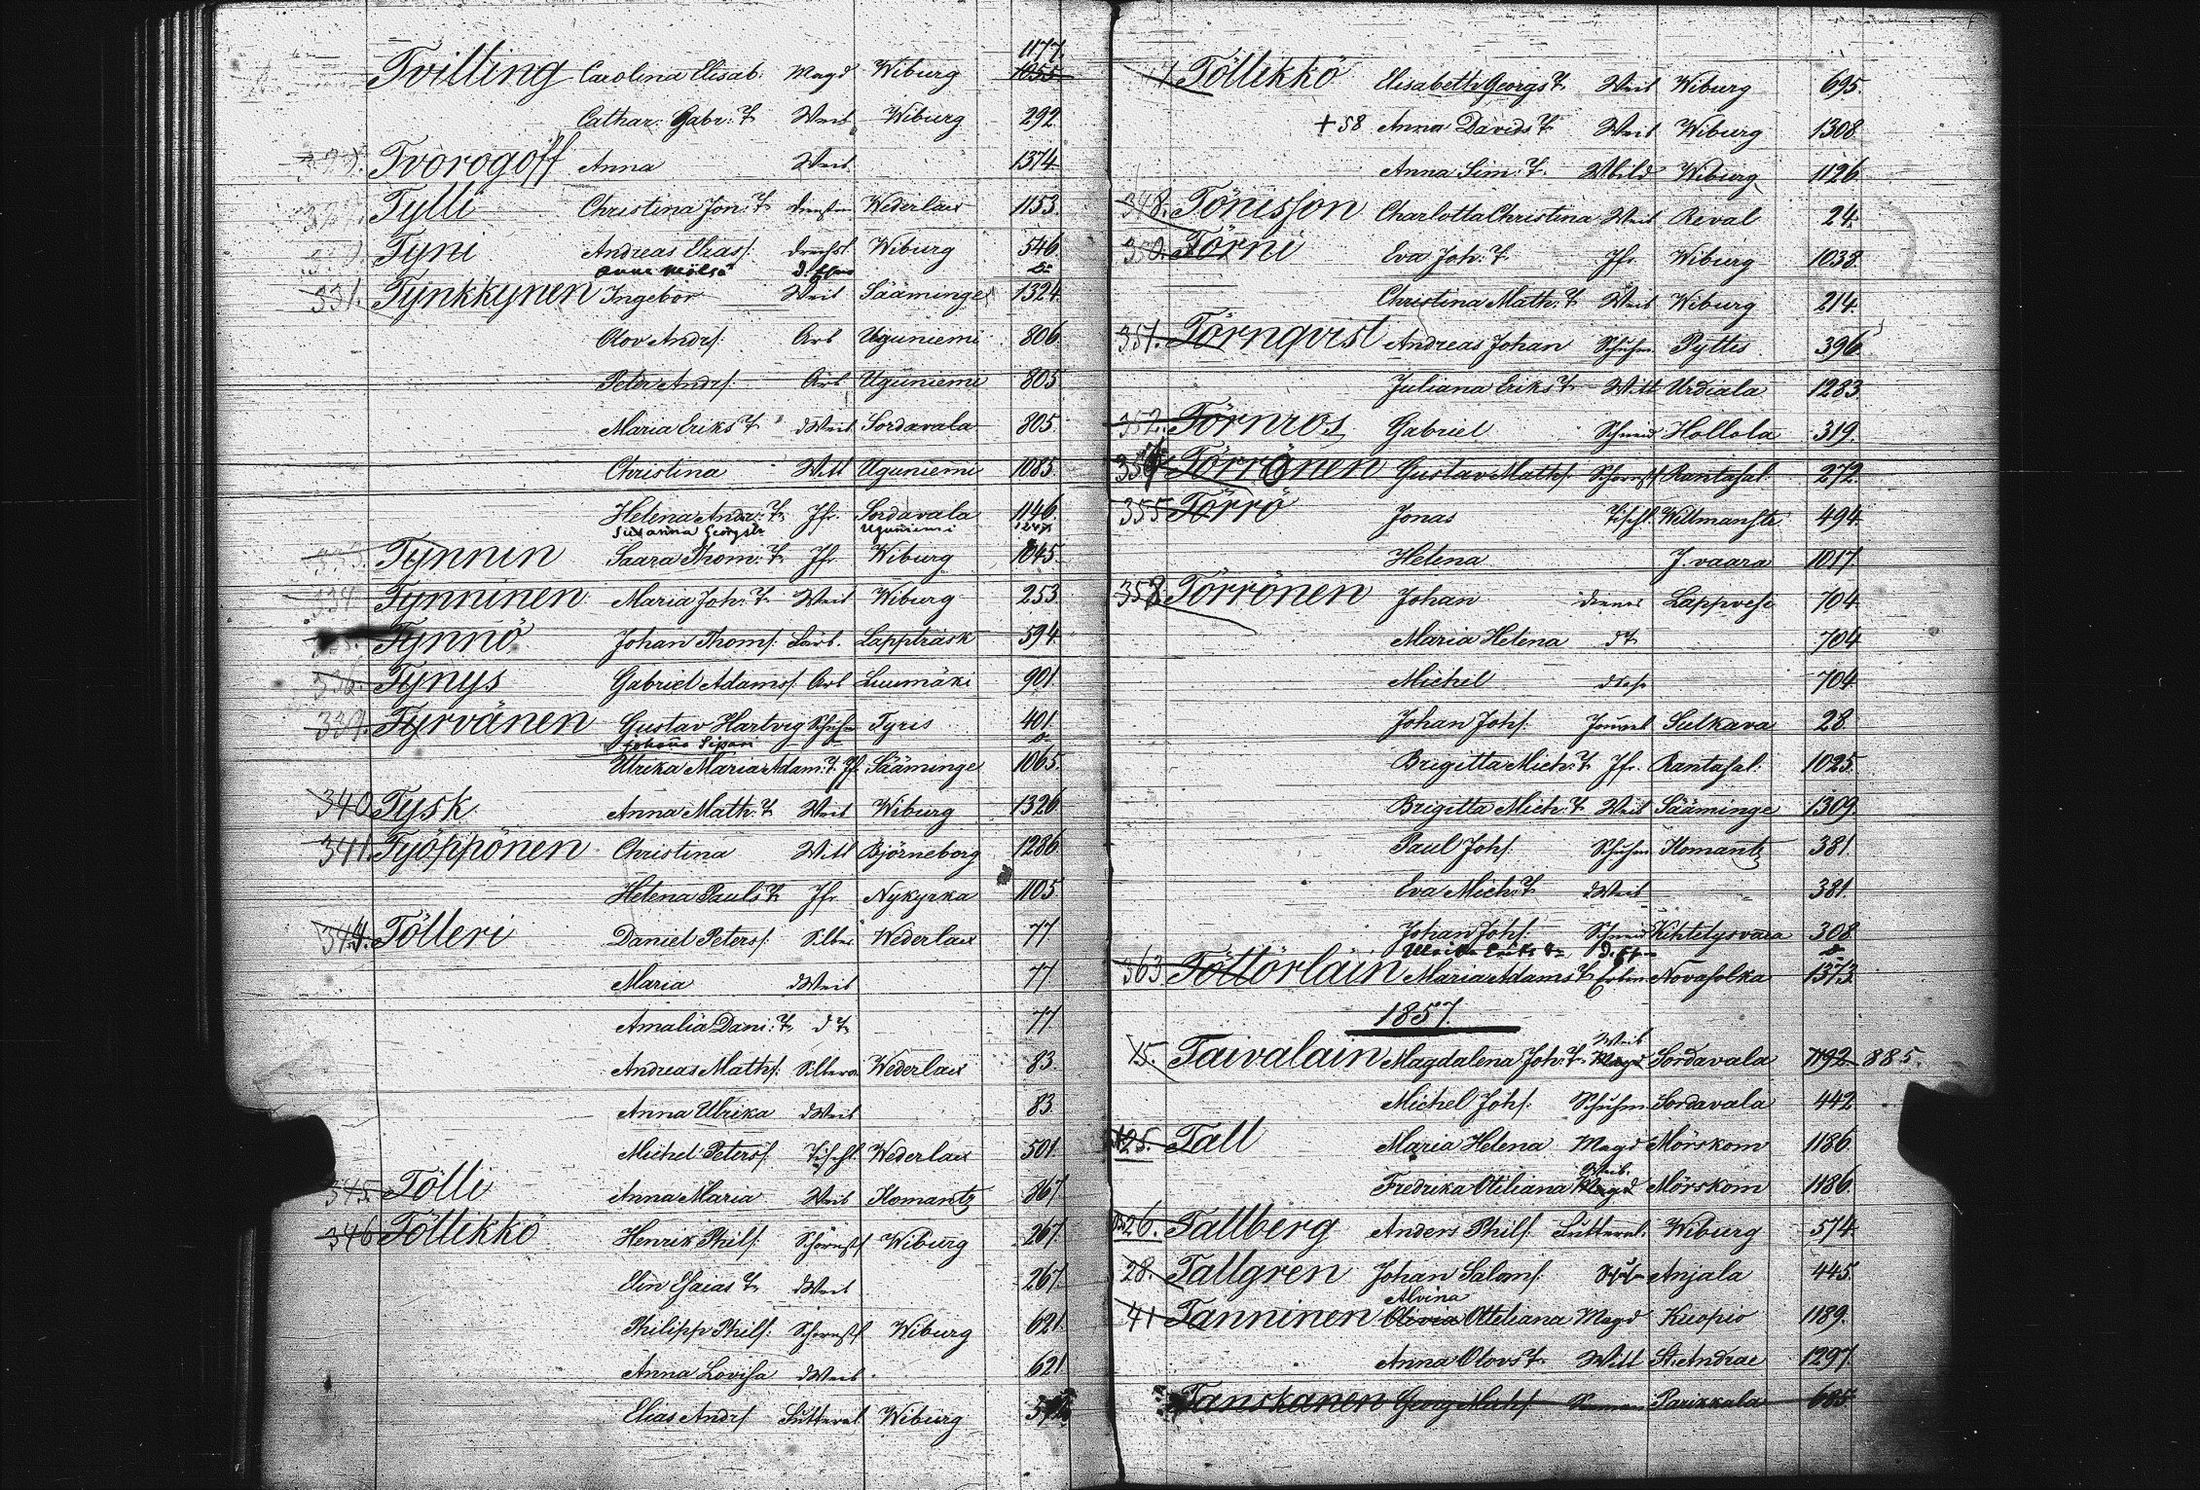 1177.
Tvilling Carolina Elisab: Magd Wiburg 1055
Cathar: Gabr: T. Weib Wiburg 292.
Tvorogoff Anna Weib 1374.
Tylli Christina Jon: T. Wederlax 1153.
Tyni Andreas Eliass. Wiburg 546.
331. Tynkkynen Ingebor Weib Sääminge 1324.
Olov Andrs. Arb Uguniemi 806.
Peter Andrs. Arb Uguniemi 805.
Maria Eriks T. dWeib Sordavala 805.
Christina Witt Uguniemi 1085.
Helena Andr: T. Jfr. Sordavala 1146.
Susanna Georgs Uguniemi
Tynnin Saara Thom: T. Jfr. Wiburg 1045.
334. Tynninen Maria Joh: T. Weib Wiburg 253.
Tynnö Johan Thoms. Lappträsk 594.
336. Tynys Gabriel Adams. Arb Luumäki 901.
339. Tyrvänen Gustav Hartvig Schuhm Tyris 401.
Ulrika Maria Adam: T. Jfr Sääminge 1065.
340. Tysk Anna Math: T. Weib Wiburg 1326.
341. Työppönen Christina Witt Björneborg 1286.
Helena Pauls T. Jfr Nykyrka 1105.
344. Tölleri Daniel Peters. Silber. Wederlax 77
Maria dWeib 77
Amalia Dani: T. d T. 77.
Andreas Maths. Wederlax 83.
Anna Ulrika dWeib 83.
Michel Peters. Tischl. Wederlax 501.
345. Tölli Anna Maria Weib Ilomantz 867
346 Töllikkö Henrik Phils. Schornstf Wiburg 267.
Elin Esaias T. dWeib 267.
Philipp Phils. Schornstf Wiburg 621.
Anna Lovisa dWeib 621.
Elias Andrs. Futteral Wiburg
Töllikkö Elisabeth Georgs T. Weib Wiburg 695.
+58 Anna Davids T. Weib Wiburg 1308.
Anna Sim: T. Wbild Wiburg 1126
348. Tönisson Charlotta Christina Weib Reval 24.
350. Törni Eva Joh: T. Jfr. Wiburg 1038.
Christina Math: T. Weib Wiburg 214.
351. Törnqvist Andreas Johan Schuhm. Pyttis 396.
Juliana Eriks T. Witt Urdiala 1283
352. Törnros Gabriel Schneid Hollola 319.
354 Törrönen Gustav Maths. Schornstf Rantasal: 272.
355 Törrö Jonas Tischl. Willmanstr. 494.
Helena J. vaara 1017.
358 Törrönen Johan Diener Lappvesi 704
Maria Helena d T. 704
Michel 704
Johan Johs. Sulkava 28.
Brigitta Mich: T. Jfr. Rantasal: 1025.
Brigitta Mich: T. Weib Sääminge 1309.
Paul Johs. Schuhm Ilomantz 381.
Eva Mich: T. dWeib 381.
Johan Johs. Schneid Kihtelysvara 308.
Ulrika Eriks
363 Töttörläin Maria Adams T. Novasolka 1373.
1857.
Weib
15. Taivalain Magdalena Joh: T. Magd Sordavala 1192 885.
Michel Johs. Schuhm Sordavala 442
25. Tall Maria Helena Magd Mörskom 1186.
Weib.
Fredrika Otiliana Magd Mörskom 1186.
26. Tallberg Anders Phils. Futteral: Wiburg 574.
28. Tallgren Johan Saloms. Anjala 445.
Alvina
41 Tanninen Olivia Otteliana Magd Kuopio 1189.
Anna Olovs T. Witt St. Andrae 1297.
Tanskanen Georg Michs. Parikkala 685.